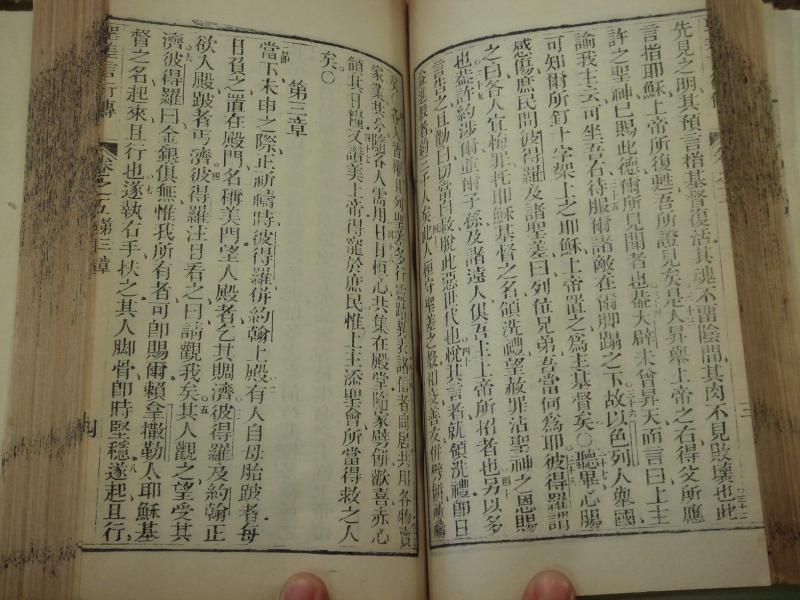 先見之明其預言指基督復活其魂不畱陰間其肉不見敗壞也此
言指耶穌上帝所復甦吾所證見矣是人昇舉上帝之右得父所應
許之聖神已賜此德爾所見聞者也蓋大闢未曾昇天而言曰上主
諭我主云可坐吾右待服爾諸敵在爾脚蹋之下故以色列人舉國
可知爾所釘十字架上之耶穌上帝置之為主基督矣〇聽畢心腸
感傷庶民問彼得羅及諸聖差曰列位兄弟吾當何為耶彼得羅謂
之曰各人宜悔罪托耶穌基督之名領洗禮望赦罪沾聖神之恩賜
也蓋許約涉爾童爾子孫及諸遠人俱吾主上帝所招者也另以多
言告之且勸曰切當自救脫此惡世代也悅其言者就領洗禮卽日
家業其分隨各人需用日日恆心共集在殿堂隨家擘餅歡喜赤心
饋其日糧又讚美上帝得寵於庶民惟上主添聖會所當得救之人
矣〇
第三章
當下未申之際正祈禱時彼得羅併約翰上殿有人自母胎跛者每
日負之置在殿門名稱美門望入殿者乞其賙濟彼得羅及約翰正
欲入殿跛者丐濟彼得羅注目看之曰請觀我矣其人觀之望受其
濟彼得羅曰金銀俱無惟我所有者可卽賜爾賴拿撒勒太耶穌基
督之名起來且行也遂執右手扶之其人脚骨卽時堅穩遂起且行
聖差言行傳 卷之五第三章